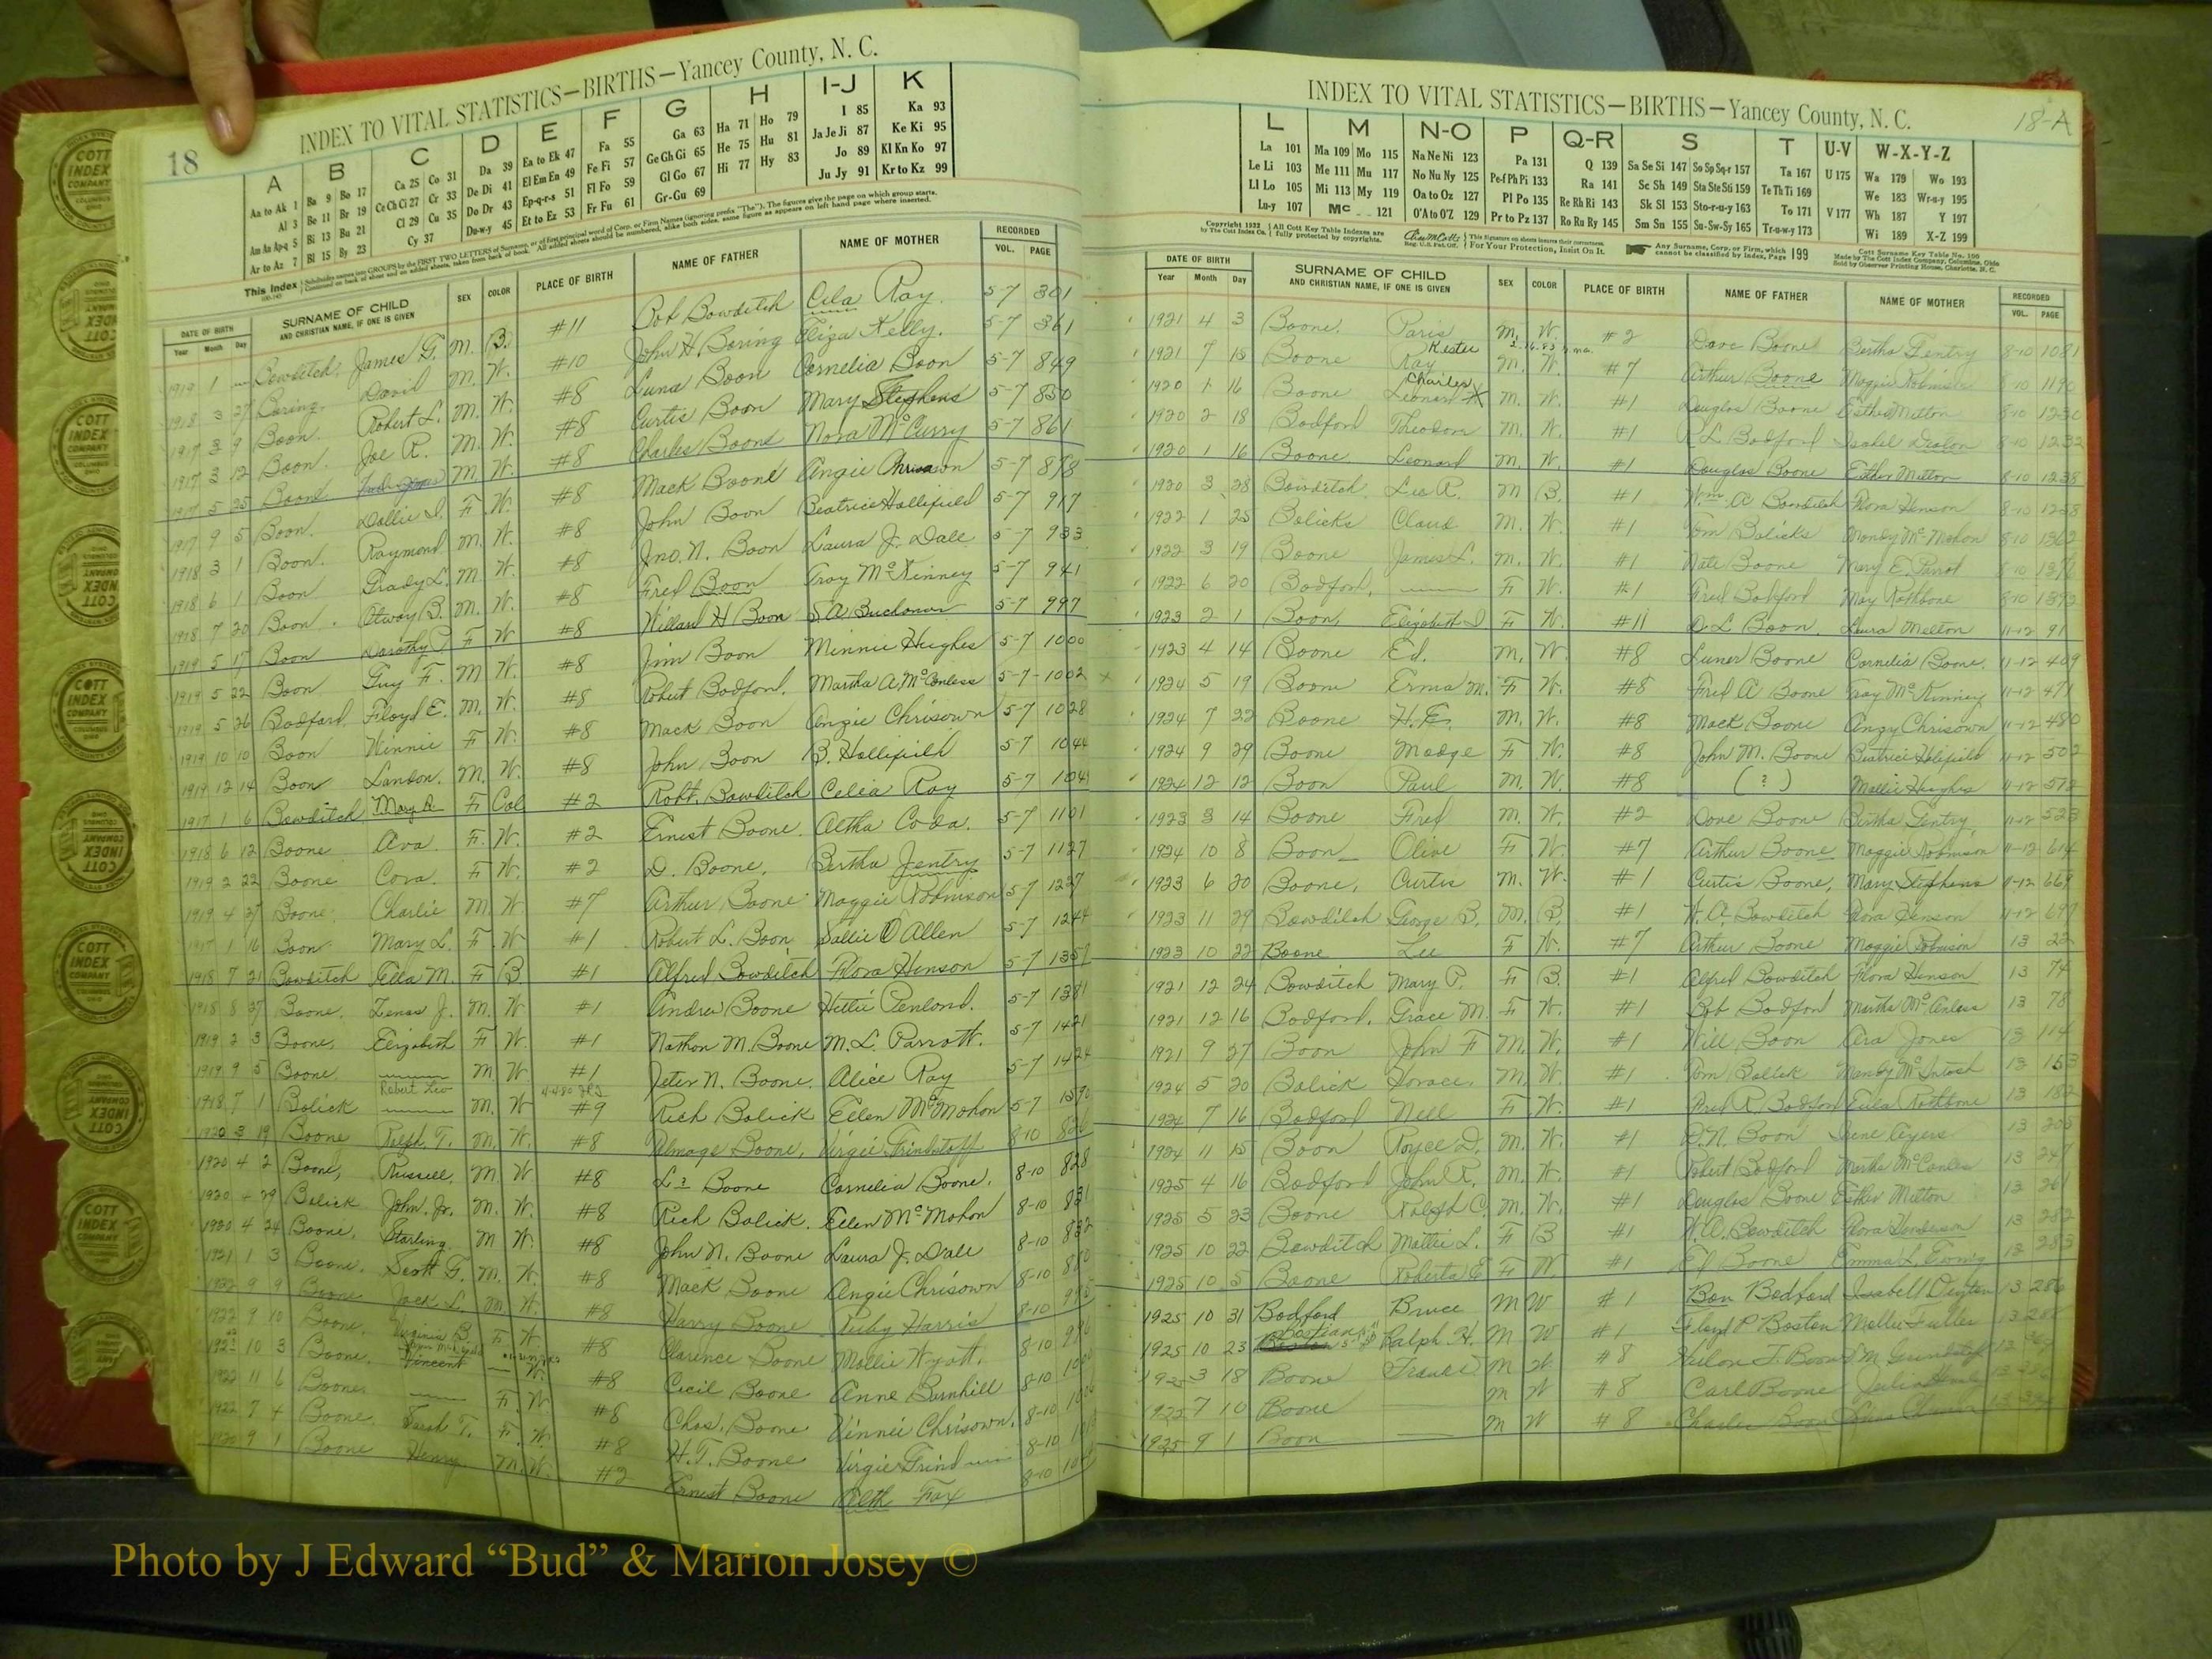 18
INDEX TO VITAL STATISTICS—BIRTHS—Yancey County, N. C.
A B C D E F G H I-J K
Aa to Ak 1 Ba 9 Bo 17 Ca 25 Co 31 Da 39 Ea to Ek 47 Fa 55 Ga 63 Ha 71 Ho 79 I 85 Ka 93
Al 3 Be 11 Br 19 Ce Ch Ci 27 Cr 33 De Di 41 El Em En 49 Fe Fi 57 Ge Gh Gi 65 He 75 Hu 81 Ja Je Ji 87 Ke Ki 95
Am An Ap-q 5 Bi 13 Bu 21 Cl 29 Cu 35 Do Dr 43 Ep-q-r-s 51 Fl Fo 59 Gl Go 67 Hi 77 Hy 83 Jo 89 Kl Kn Ko 97
Ar to Az 7 Bl 15 By 23 Cy 37 Du-w-y 45 Et to Ez 53 Fr Fu 61 Gr-Gu 69 Ju Jy 91 Kr to Kz 99
DATE OF BIRTH SURNAME OF CHILD SEX COLOR PLACE OF BIRTH NAME OF FATHER NAME OF MOTHER RECORDED
Year Month Day AND CHRISTIAN NAME, IF ONE IS GIVEN VOL. PAGE
1919 1 — Bowditch, James G. M. B. #11 Bob Bowditch Cela Ray 5-7 301
1918 3 27 Boring. David M. W. #10 John H. Boring Eliza Kelly. 5-7 361
1917 3 9 Boon. Robert L. M. W. #8 Luna Boon Cornelia Boon 5-7 849
1917 3 12 Boon. Joe R. M. W. #8 Curtis Boon Mary Stephens 5-7 850
1917 5 25 Boone M. W. #8 Charles Boone Nora McCurry 5-7 861
1917 9 5 Boon. Dollie I. F. W. #8 Mack Boone Angie 5-7 878
1918 3 1 Boon. Raymond M. W. #8 John Boon Beatrice Hollifield 5-7 917
1918 6 1 Boon Grady L. M W. #8 Jno. N. Boon Laura J. Dale 5-7 933
1918 7 20 Boon. Otway B. M. W. #8 Fred Boon Troy McKinney 5-7 941
1919 5 17 Boon Dorothy P. F. W #8 Willard H Boon S. A. Buchanan 5-7 997
1919 5 22 Boon Guy F. M W. #8 Jim Boon Minnie Hughes 5-7 1000
1919 5 26 Bodford, Floyd E. M. W. #8 Robert Bodford. Martha A. McCanless 5-7 1002
1919 10 10 Boon Winnie F W. #8 Mack Boon Angie Chrisown 5-7 1028
1919 12 14 Boon Landon. M. W. #8 John Boon B. Hollifield 5-7 1044
1917 1 6 Bowditch Mary A. F Col #2 Robt. Bowditch Celia Ray 5-7 104
1918 6 12 Boone Ava F. W. #2 Ernest Boone. Altha Coda. 5-7 1101
1919 2 22 Boone Cora. F. W. #2 D. Boone, Bertha Jentry 5-7 1127
1919 4 27 Boone, Charlie M. W #7 Arthur Boone Maggie Robinson 5-7 1227
1917 1 16 Boon Mary L. F. W #1 Robert L. Boon, Sallie O Allen 5-7 1244
1918 7 21 Bowditch Ella M. F B. #1 Alfred Bowditch Flora Henson 5-7 1357
1918 8 27 Boone. Zenas J. M. W #1 Andrew Boone Hettie Penland. 5-7 1381
1919 2 3 Boone, Elizabeth F W. #1 Nathan M. Boone M. L. Parrott. 5-7 1421
1919 9 5 Boone —— M. W #1 Jeter N. Boone. Alice Ray 5-7 1424
1918 7 1 Bolick Robert Leo M. W #9 Rich Bolick Ellen McMahon 5-7 1590
1920 3 19 Boone Ralph T. M. W. #8 Talmage Boone, Virgie Grindstaff 8-10 826
1920 4 2 Boone, Russell, M W #8 L? Boone Cornelia Boone. 8-10 828
1920 4 29 Bolick John. Jr. M. W. #8 Rich Bolick. Ellen McMahon 8-10 831
1920 4 24 Boone, Starling. M W. #8 John N. Boone Laura J. Dale 8-10 832
1921 1 3 Boone. Scott G. M. W. #8 Mack Boone Angie Chrisown 8-10
1922 9 9 Boone Jack L. M. W. #8 Harry Boone Ruby Harris 8-10
1922 9 10 Boone. Virginia B. F. W #8 Clarence Boone Mollie Wyatt. 8-10
1922 10 3 Boone. Vincent W. #8 Cecil Boone Anne Burnhill 8-10
1922 11 6 Boone —— F. W #8 Chas. Boone Vinnie Chrisown. 8-10
1922 7 4 Boone. Sarah T. F. W. #8 H. T. Boone Virgie 8-10
9 1 Boone Henry M. W. #2 Ernest Boone Alth Fox 8-10
INDEX TO VITAL STATISTICS—BIRTHS—Yancey County, N. C.
18-A
L M N-O P Q-R S T U-V W-X-Y-Z
La 101 Ma 109 Mo 115 Na Ne Ni 123 Pa 131 Q 139 Sa Se Si 147 So Sp Sq-r 157 Ta 167 U 175 Wa 179 Wo 193
Le Li 103 Me 111 Mu 117 No Nu Ny 125 Pe-f Ph Pi 133 Ra 141 Sc Sh 149 Sta Ste Sti 159 Te Th Ti 169 We 183 Wr-u-y 195
Ll Lo 105 Mi 113 My 119 Oa to Oz 127 Pl Po 135 Re Rh Ri 143 Sk Sl 153 Sto-r-u-y 163 To 171 V 177 Wh 187 Y 197
Lu-y 107 Mc 121 O'A to O'Z 129 Pr to Pz 137 Ro Ru Ry 145 Sm Sn 155 Su-Sw-Sy 165 Tr-u-w-y 173 Wi 189 X-Z 199
DATE OF BIRTH SURNAME OF CHILD SEX COLOR PLACE OF BIRTH NAME OF FATHER NAME OF MOTHER RECORDED
Year Month Day AND CHRISTIAN NAME, IF ONE IS GIVEN VOL. PAGE
1921 4 3 Boone. Paris M. W. #2 Dave Boone Bertha Gentry 8-10 1081
1921 7 15 Boone Kester Ray M. W. #7 Arthur Boone Maggie Robinson 8-10 1190
1920 1 16 Boone Charles Leonard M. W. #1 Douglas Boone Esther Melton 8-10 1230
1920 2 18 Bodford Theodore M. W. #1 R. L. Bodford Isabel 8-10 1232
1920 1 16 Boone Leonard M. W. #1 Douglas Boone Esther Melton 8-10 1238
1920 3 28 Bowditch. Leo R. M B. #1 Wm. A Bowditch Flora Henson 8-10 1258
1922 1 25 Bolicks Claud M. W. #1 Tom Bolicks Mandy McMahon 8-10
1922 3 19 Boone James L. M. W. #1 Nate Boone Mary E. Parrot 8-10
1922 6 20 Bodford. —— F W. #1 Fred Bodford May Rathbone 8-10
1923 2 1 Boon, Elizabeth I F W. #11 D. L. Boon. Laura Melton 11-12 91
1923 4 14 Boone Ed. M. W. #8 Luner Boone Cornelia Boone. 11-12 409
1924 5 19 Boone Erma M. F W. #8 Fred A Boone Troy McKinney 11-12 471
1924 7 22 Boone H. E. M. W. #8 Mack Boone Angy Chrisown 11-12 480
1924 9 29 Boone Madge F. W. #8 John M. Boone Beatrice Holifield 11-12 502
1924 12 12 Boon Paul M. W. #8 (?) Mollie Hughes 11-12 512
1923 3 14 Boone Fred M. W. #2 Dave Boone Bertha Gentry, 11-12 523
1924 10 8 Boon Olive F W. #7 Arthur Boone Maggie Robinson 11-12 614
1923 6 20 Boone, Curtis M. W. #1 Curtis Boone, Mary Stephens 11-12 669
1923 11 29 Bowditch George B. M. B. #1 W. A. Bowditch Flora Henson 11-12 697
1923 10 22 Boone Lee F W. #7 Arthur Boone Maggie Robinson 13 22
1921 12 24 Bowditch Mary P. F B. #1 Alfred Bowditch Flora Henson 13 74
1921 12 16 Bodford. Grace M. F W. #1 Bob Bodford Martha McCanless 13 78
1921 9 27 Boon John F M. W. #1 Will Boon Cera Jones 13 114
1924 5 20 Bolick Horace. M. W. #1 Tom Bolick Mandy McIntosh 13 153
1924 7 16 Bodford Nell F W. #1 Fred R. Bodford Eula Rathbone 13 182
1924 11 15 Boon Royce D. M. W. #1 D. N. Boon Irene Ayers 13 205
1925 4 16 Bodford John R. M. W. #1 Robert Bodford Martha McCanless 13 247
1925 5 23 Boone Ralph C. M. W. #1 Douglas Boone Esther Melton 13 261
1925 10 22 Bowditch Mattie L. F B #1 W. A. Bowditch Flora Henderson 13 282
1925 10 5 Boone Roberta E F W. #1 Ed Boone Emma L. Ewing 13 283
1925 10 31 Bodford Bruce M W #1 Bon Bodford Isabell Deyton 13 286
1925 10 23 Bostian Ralph H. M W #1 Floyd P Boston Mollie Fuller 13 288
1925 3 18 Boone M W #8 Boone 13
1925 7 10 Boone —— M W #8 Carl Boone Julia 13
1925 9 1 Boon —— M W #8 Charles Boone
Photo by J Edward “Bud” & Marion Josey ©